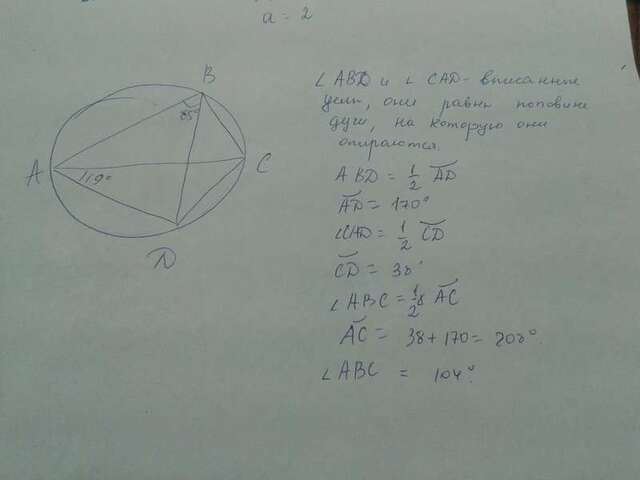 a = 2
B
85°
A
19°
C
D
∠ABD и ∠CAD - вписанные
углы, они равны половине
дуги, на которую они
опираются.
ABD = 1/2 AD
AD = 170°
∠CAD = 1/2 CD
CD = 38°
∠ABC = 1/2 AC
AC = 38 + 170 = 208°.
∠ABC = 104°.